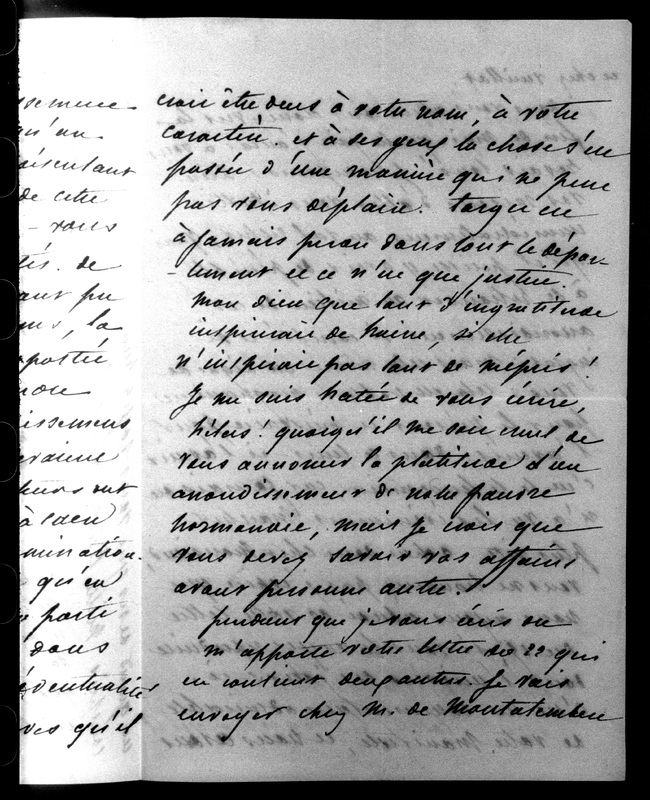 ssemens
qu'un
discutant
de cette
- vous
tés. de
ant pu
ns, la
portée
issemens
hurs ont
à Caen
mination.
qu'en
parti
dans
éventualités
ves qu'il
crois être dens à votre nom, à votre
caractère. et à ses yeux la chose s'est
passée d'une manière qui ne peut
pas vous déplaire. Target est
à jamais perdu dans tout le dépar-
-tement et ce n'est que justice.
mon dieu que tant d'ingratitude
inspirerait de haine si elle
n'inspirait pas tant de mépris!
Je me suis hatée de vous écrire,
hélas! quoiqu'il me soit cruel de
vous annoncer la platitude d'un
arrondissement de notre pauvre
normandie, mais je crois que
vous devez savoir vos affaires
avant personne autre.
pendant que je vous écris on
m'apporte votre lettre du 22 qui
en contient deux autres. Je vais
envoyer chez M. de Montalembert